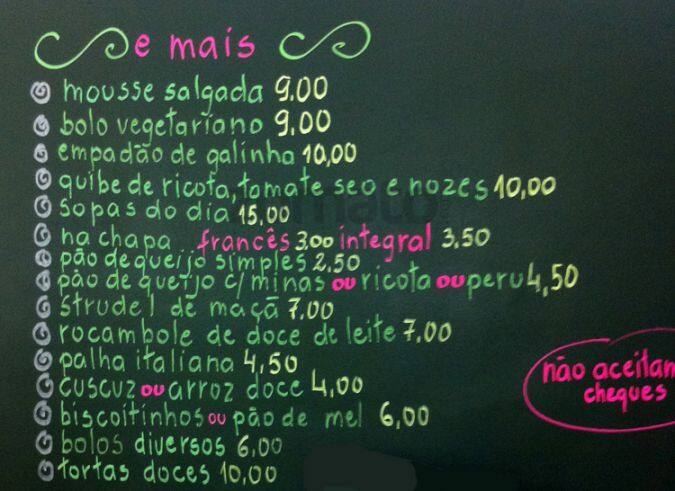 e mais
mousse salgada 9.00
bolo vegetariano 9.00
empadão de galinha 10,00
quibe de ricota, tomate seo e nozes 10,00
sopas do dia 15,00
na chapa francês 3.00 integral 3,50
pão de queijo simples 2.50
pão de queijo c/minas ou ricota ou peru 4,50
strudel de maçã 7.00
rocambole de doce de leite 7,00
palha italiana 4,50
cuscuz ou arroz doce 4,00
biscoitinhos ou pão de mel 6,00
bolos diversos 6,00
tortas doces 10,00
não aceitam
cheques